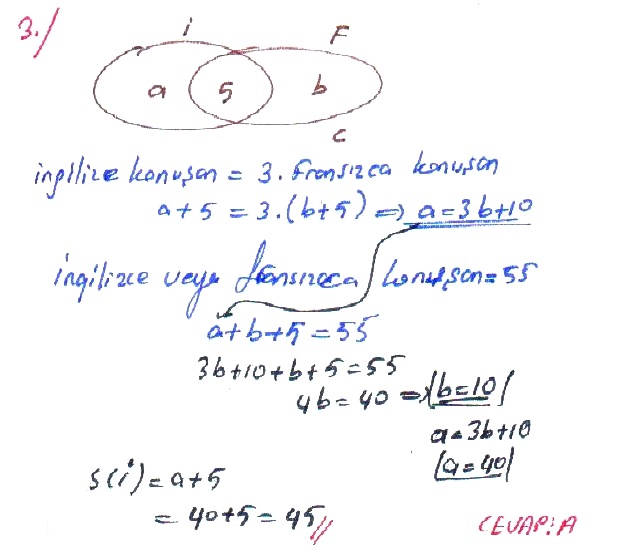 3./
i F
a 5 b
C
ingilizce konuşan = 3. Fransızca konuşan
a+5 = 3.(b+5) => a=3b+10
ingilizce veya fransızca konuşan=55
a+b+5=55
3b+10+b+5=55
4b=40 => |b=10|
a=3b+10
|a=40|
s(i)=a+5
=40+5=45//
CEVAP:A